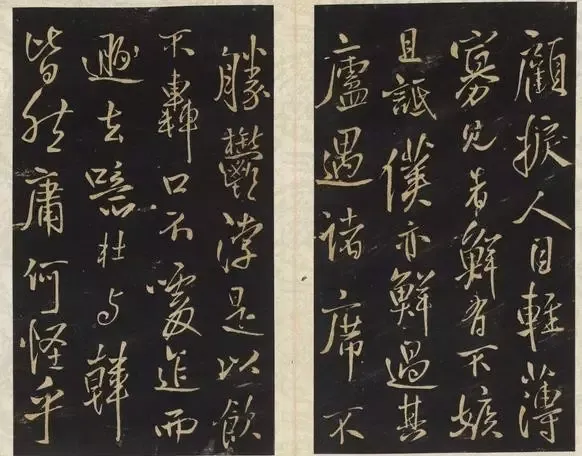 顧人目輕薄
寡見者鮮有不嫉
且詆僕亦鮮過其
廬遇諸席不
勝鬱浡是以飲
不轟口不而
遯去噫杜与韓
皆然庸何怪乎